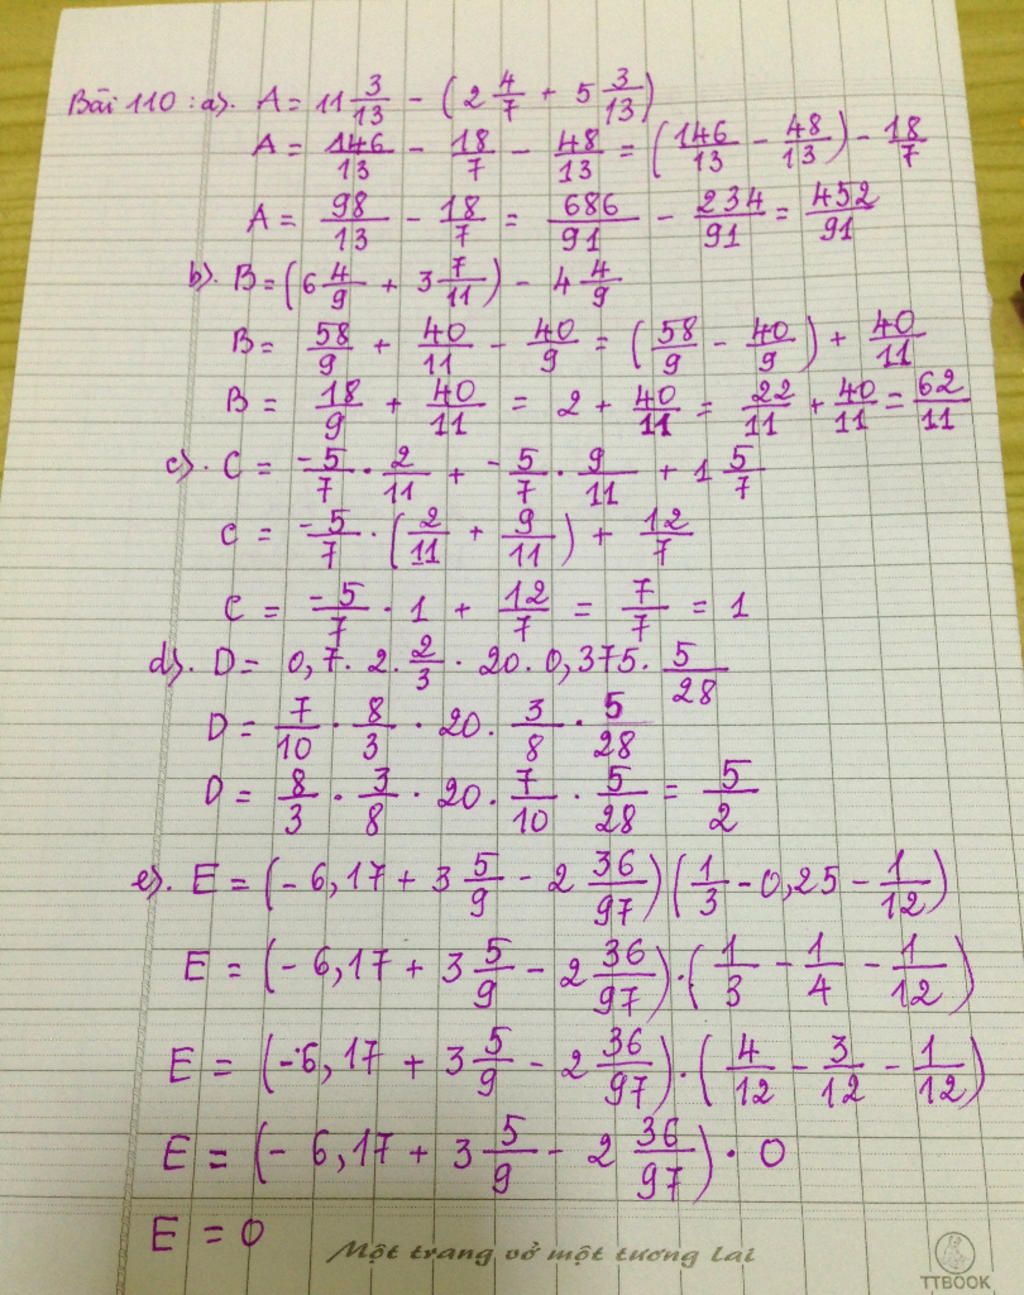 Bài 110 : a). A = 11 3/13 - (2 4/7 + 5 3/13)
A = 146/13 - 18/7 - 48/13 = (146/13 - 48/13) - 18/7
A = 98/13 - 18/7 = 686/91 - 234/91 = 452/91
b). B = (6 4/9 + 3 7/11) - 4 4/9
B = 58/9 + 40/11 - 40/9 = (58/9 - 40/9) + 40/11
B = 18/9 + 40/11 = 2 + 40/11 = 22/11 + 40/11 = 62/11
c). C = -5/7 . 2/11 + -5/7 . 9/11 + 1 5/7
C = -5/7 . (2/11 + 9/11) + 12/7
C = -5/7 . 1 + 12/7 = 7/7 = 1
d). D = 0,7 . 2 . 2/3 . 20 . 0,375 . 5/28
D = 7/10 . 8/3 . 20 . 3/8 . 5/28
D = 8/3 . 3/8 . 20 . 7/10 . 5/28 = 5/2
e). E = (- 6,17 + 3 5/9 - 2 36/97) (1/3 - 0,25 - 1/12)
E = (- 6,17 + 3 5/9 - 2 36/97) . (1/3 - 1/4 - 1/12)
E = (- 6,17 + 3 5/9 - 2 36/97) . (4/12 - 3/12 - 1/12)
E = (- 6,17 + 3 5/9 - 2 36/97) . 0
E = 0
Một trang vở một tương lai
TTBOOK